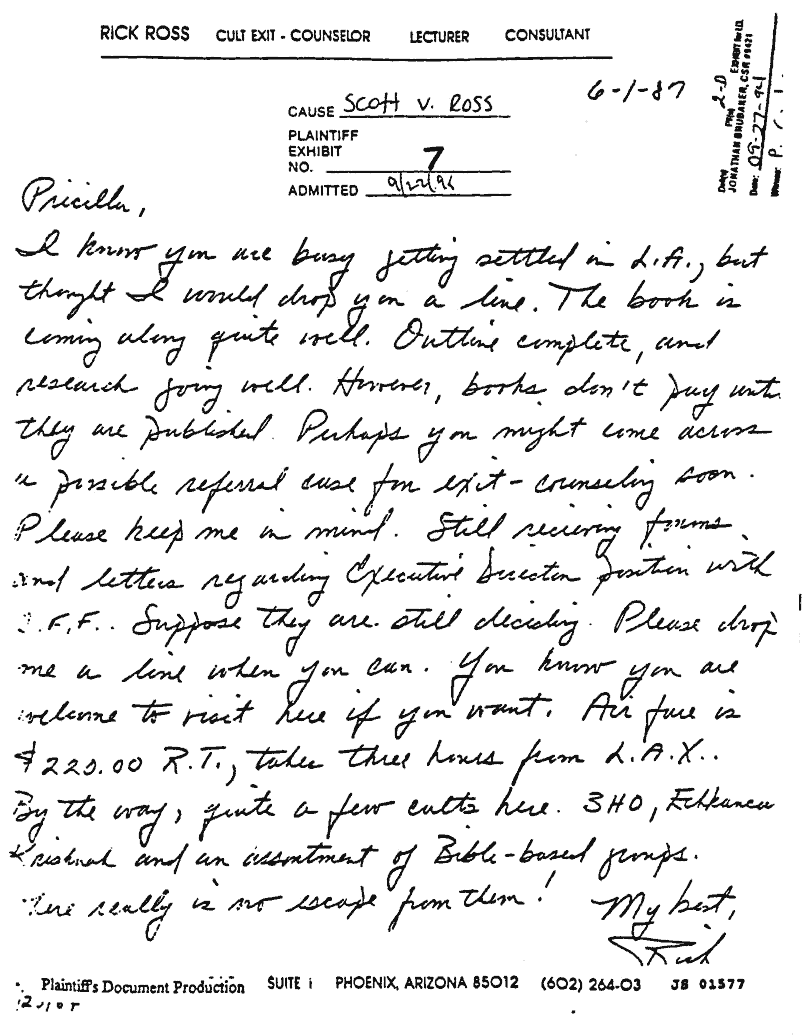 RICK ROSS CULT EXIT - COUNSELOR LECTURER CONSULTANT
6-1-87
CAUSE SCOTT V. ROSS
PLAINTIFF
EXHIBIT
NO. 7
ADMITTED
2-D EXHIBIT for I.D.
JONATHAN BRUBAKER, CSR #9421
Date: 09-27-94
Pricilla,
I know you are busy getting settled in L.A., but
thought I would drop you a line. The book is
coming along quite well. Outline complete, and
research going well. However, books don't pay unti
they are published. Perhaps you might come across
a possible referral case for exit-counseling soon.
Please keep me in mind. Still recieving forms
and letters regarding Executive Director position with
.F.F.. Suppose they are still deciding. Please drop
me a line when you can. You know you are
welcome to visit here if you want. Air fare is
R.T., takes three hours from L.A.X..
By the way, quite a few cults here. 3HO,
Krishnah and an assortment of Bible-based groups.
There really is no escape from them! My best,
Rick
Plaintiff's Document Production SUITE i PHOENIX, ARIZONA 85012 (602) 264-03 JS 01577